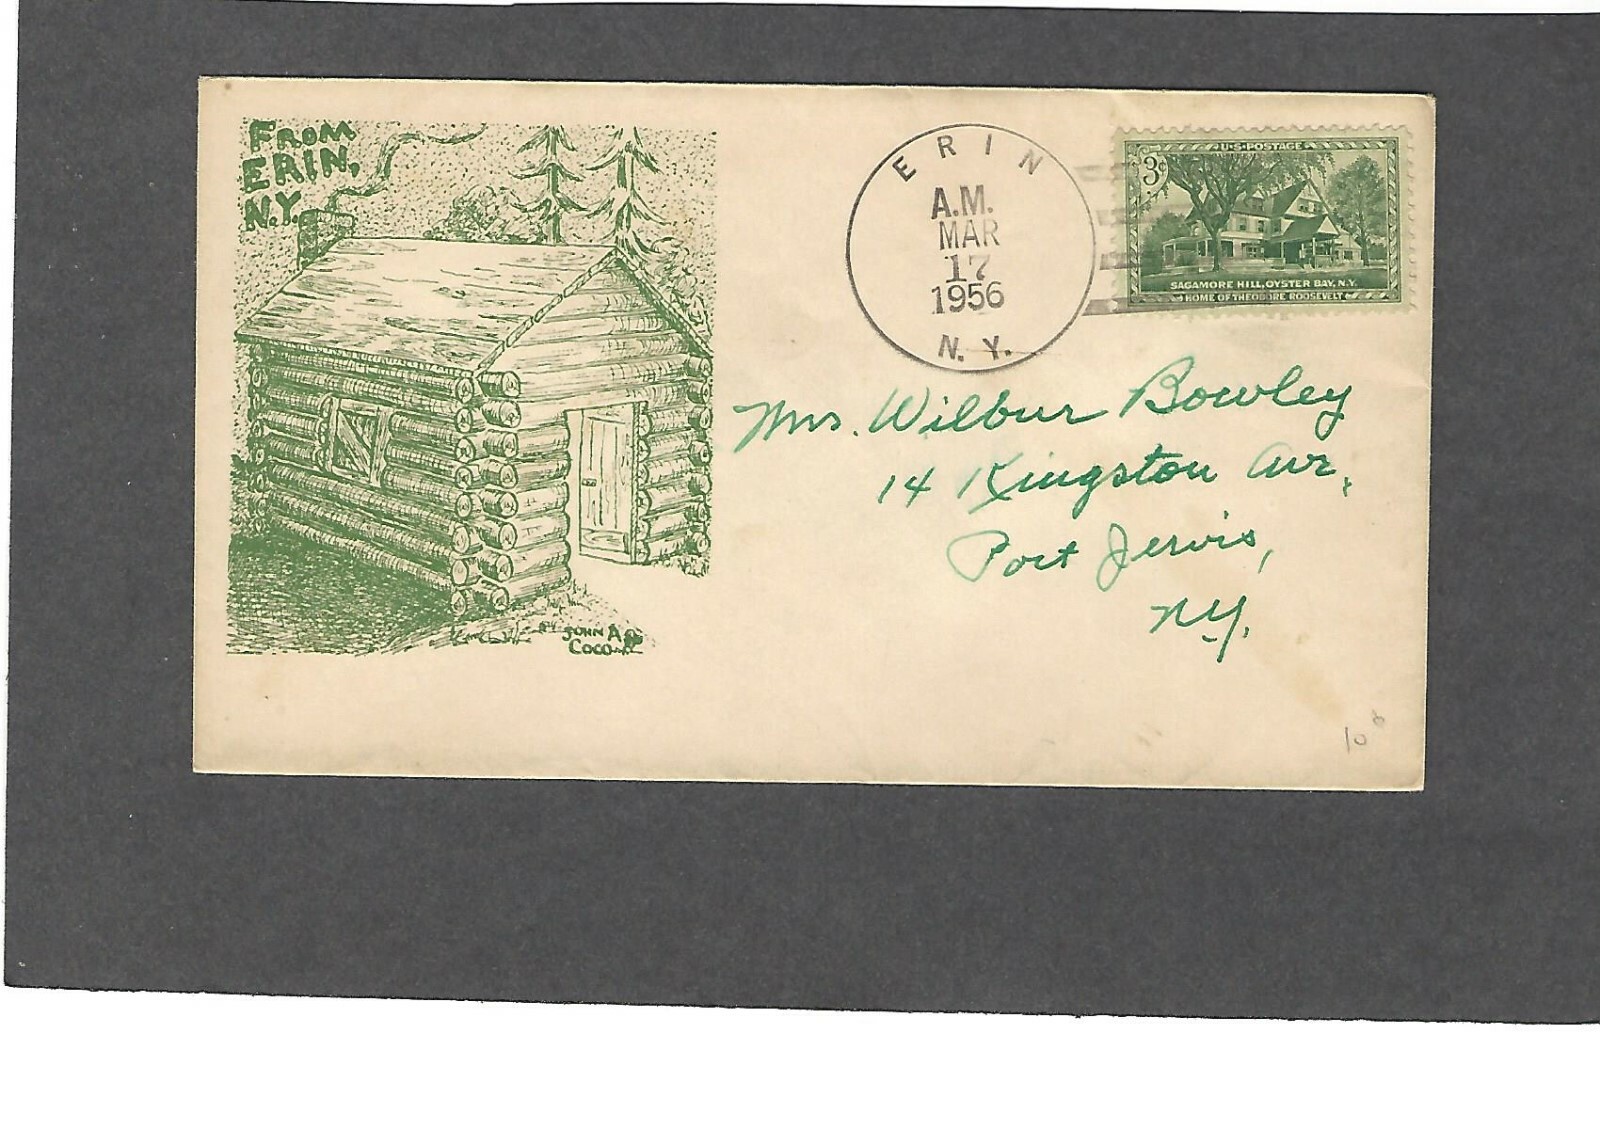 FROM
ERIN,
N.Y.
BY JOHN A.
COCO
ERIN
A.M.
MAR
17
1956
N. Y.
U·S·POSTAGE
3¢
SAGAMORE HILL, OYSTER BAY, N.Y.
HOME OF THEODORE ROOSEVELT
Mrs. Wilbur Bowley
14 Kingston Ave,
Port Jervis,
N.Y.